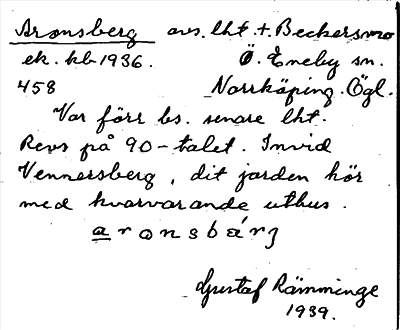 Aronsberg avs. lht. t. Beckersmo
ek. kb 1936. Ö. Eneby sn.
458 Norrköping. Ögl.
Var förr bs. senare lht.
Revs på 90-talet. Invid
Vennersberg, dit jorden hör
med kvarvarande uthus.
aronsbárj
Gustaf Rämminge
1939.